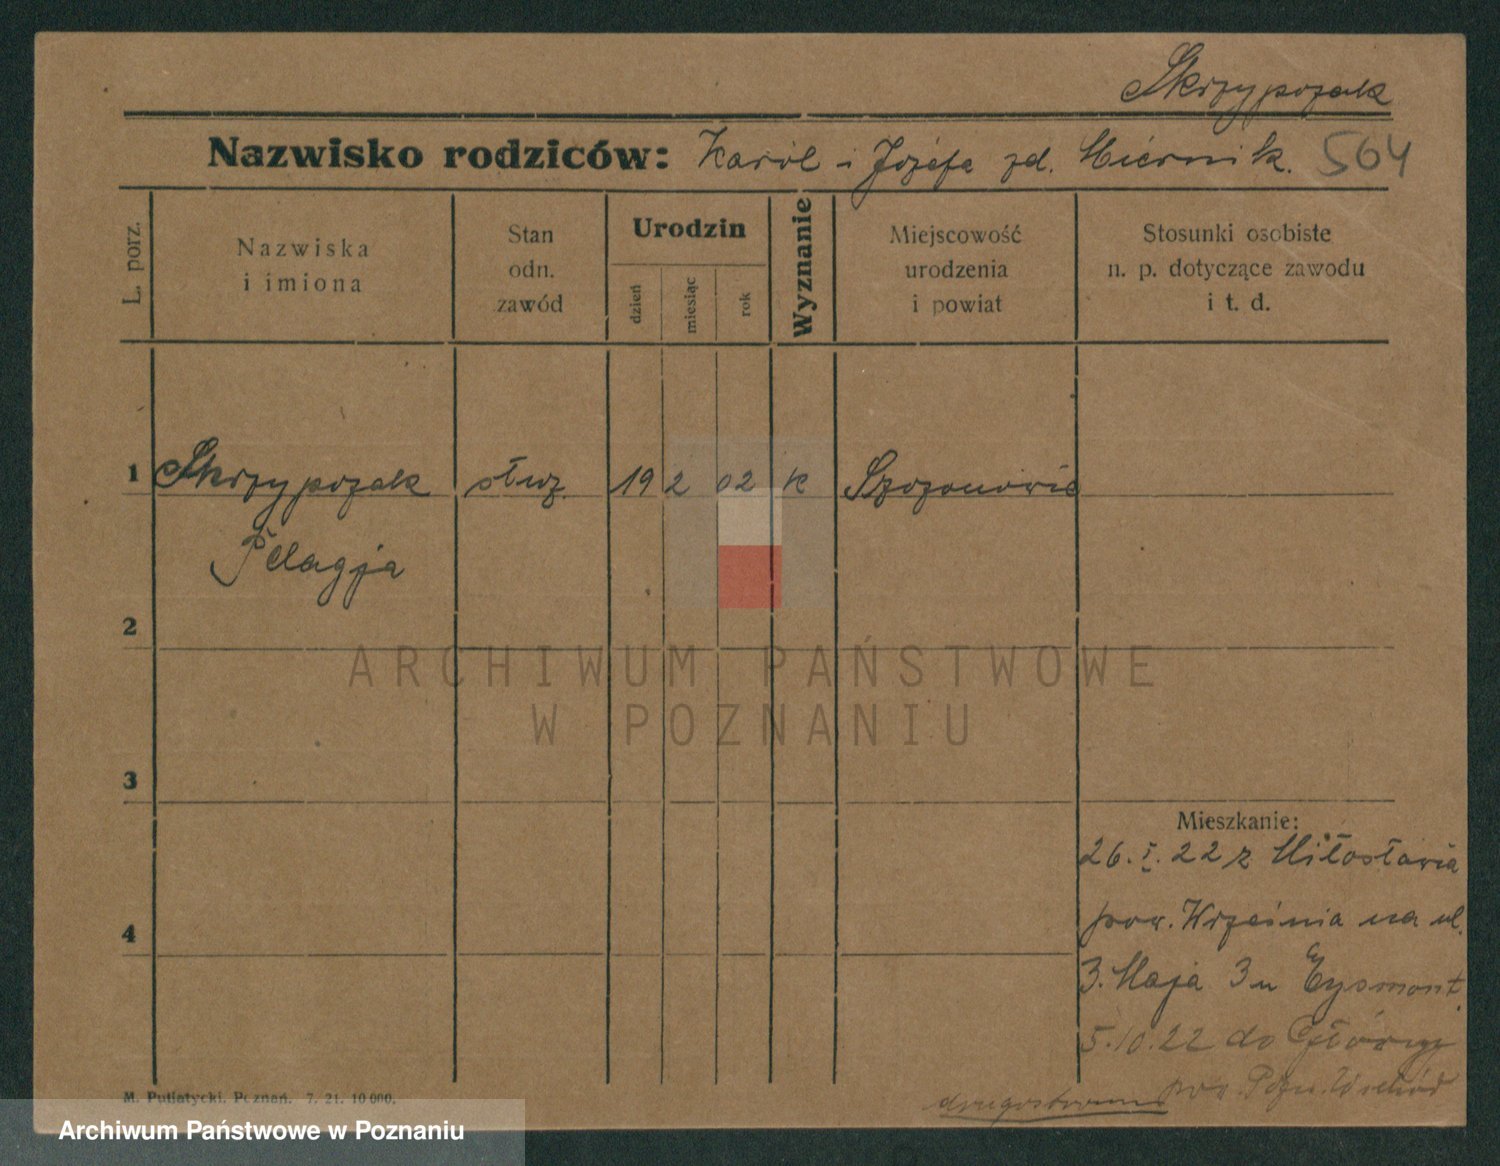 Skrzypczak
Nazwisko rodziców: Karól i Józefa zd. Miernik. 564
L. porz.
Nazwiska
i imiona
Stan
odn.
zawód
Urodzin
dzień
miesiąc
rok
Wyznanie
Miejscowość
urodzenia
i powiat
Stosunki osobiste
n. p. dotyczące zawodu
i t. d.
1 Skrzypczak służ. 19 2 02 k
Pelagja
2
ARCHIWUM PAŃSTWOWE
W POZNANIU
3
Mieszkanie:
26.I.22 z Miłosławia
4
pow. Września na ul.
3. Maja 3 u
5.10.22 do
pow. Pozn. Wschód
M. Putiatycki, Poznań. 7. 21. 10 000.
Archiwum Państwowe w Poznaniu